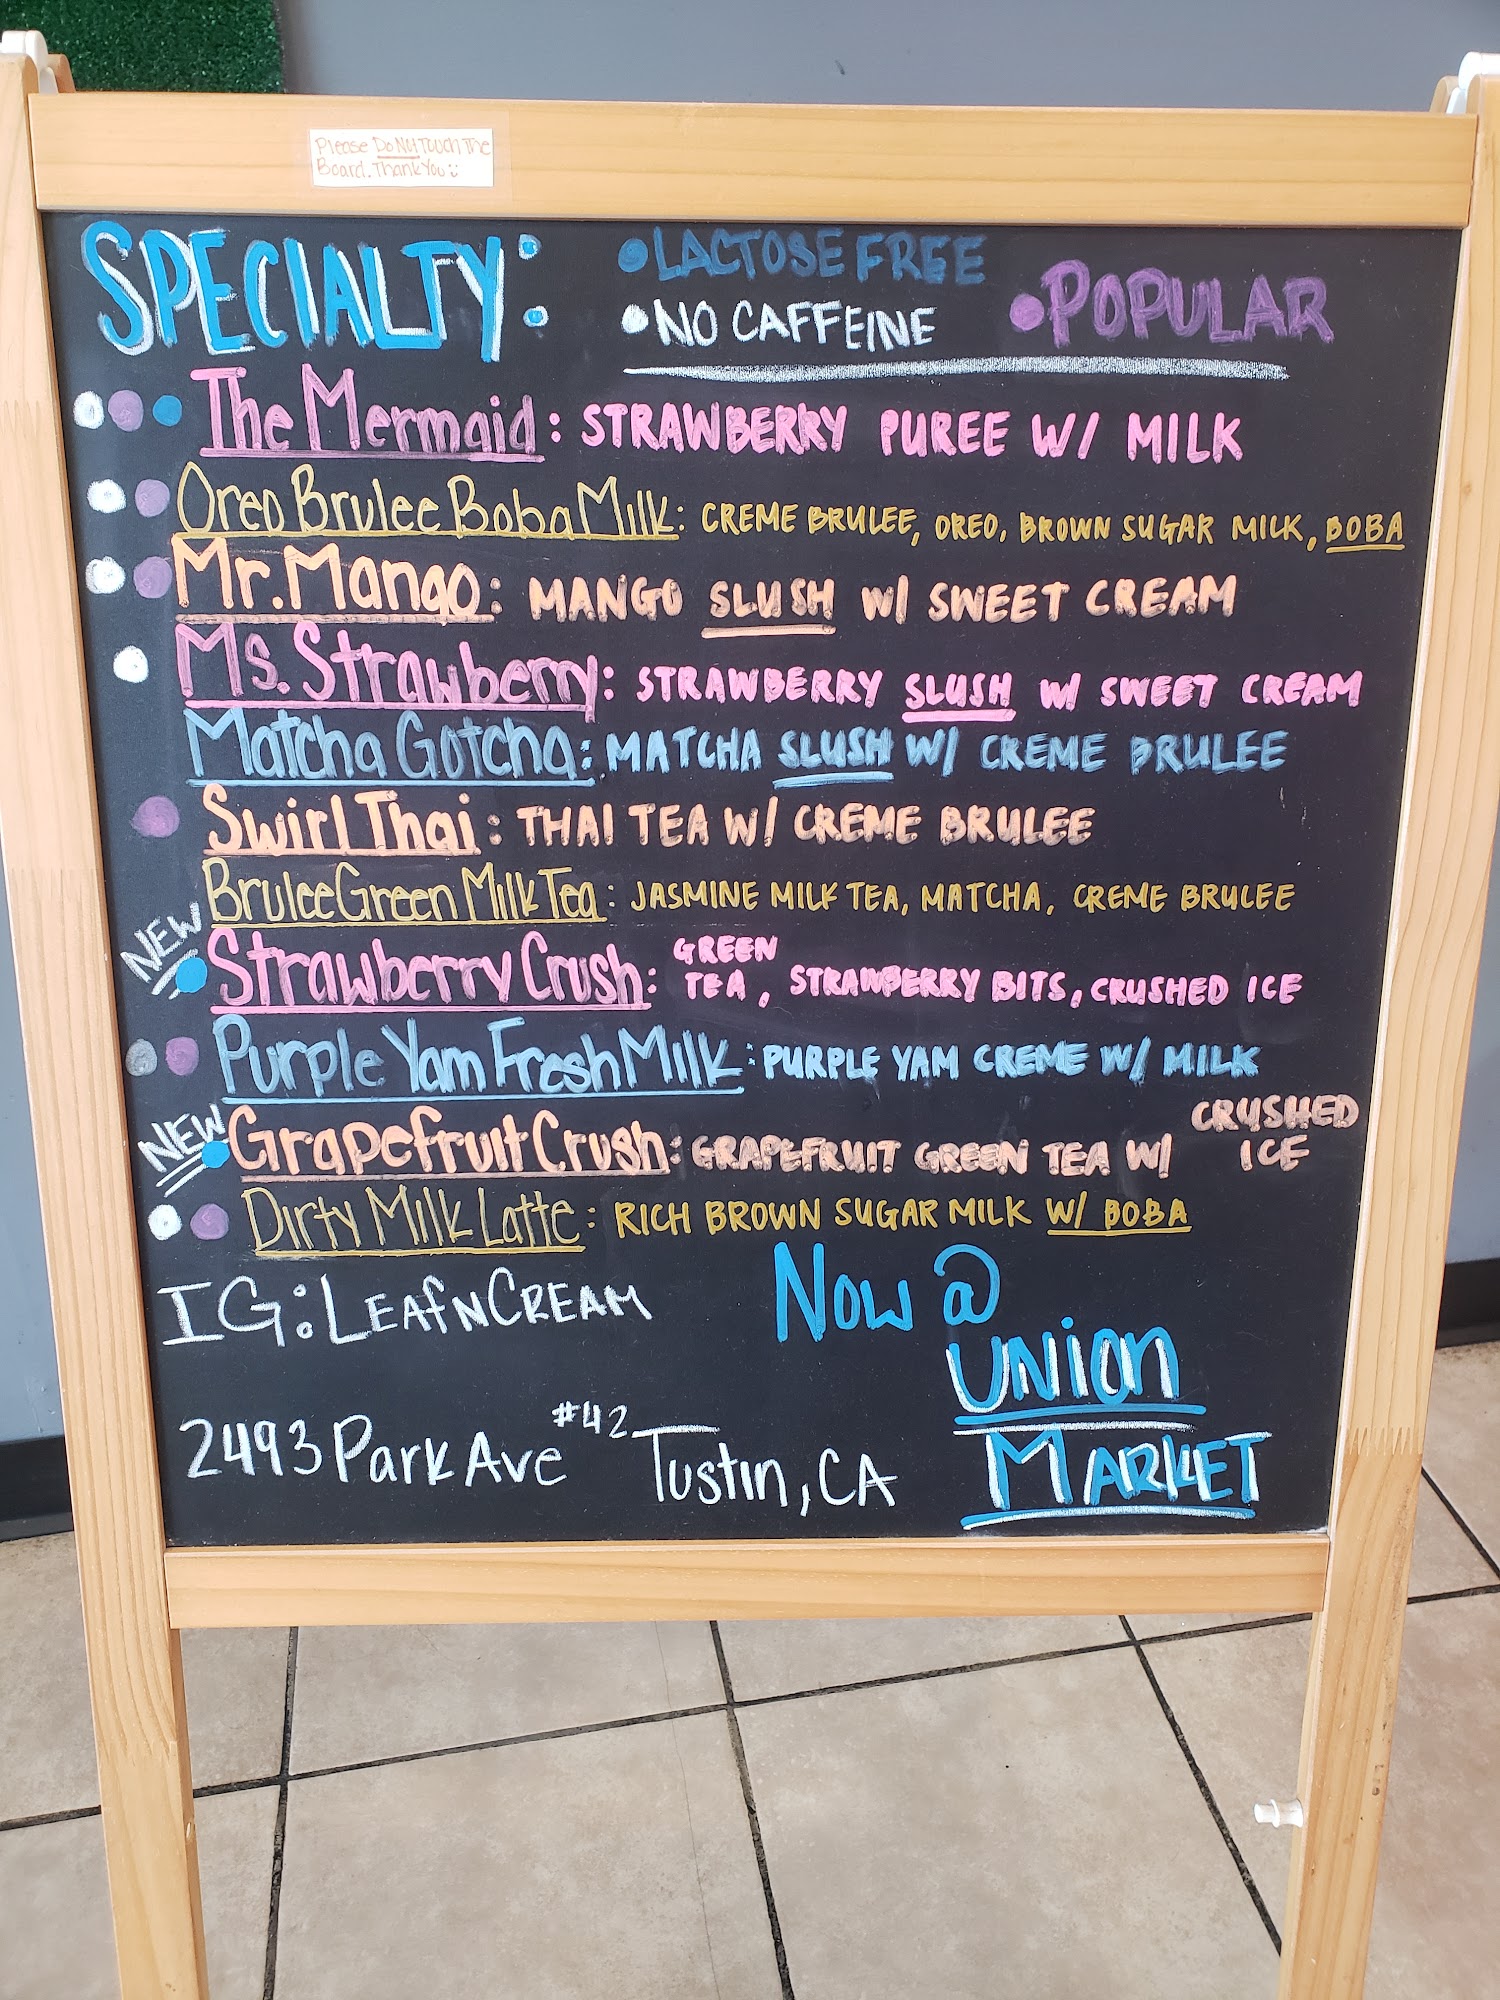 Please Do Not Touch The
Board. Thank You
SPECIALTY:
• LACTOSE FREE
• NO CAFFEINE
• POPULAR
The Mermaid: STRAWBERRY PUREE W/ MILK
Oreo Brulee Boba Milk: CREME BRULEE, OREO, BROWN SUGAR MILK, BOBA
Mr. Mango: MANGO SLUSH W/ SWEET CREAM
Ms. Strawberry: STRAWBERRY SLUSH W/ SWEET CREAM
Matcha Gotcha: MATCHA SLUSH W/ CREME BRULEE
Swirl Thai: THAI TEA W/ CREME BRULEE
Brulee Green Milk Tea: JASMINE MILK TEA, MATCHA, CREME BRULEE
NEW
Strawberry Crush: GREEN TEA, STRAWBERRY BITS, CRUSHED ICE
Purple Yam Fresh Milk: PURPLE YAM CREME W/ MILK
NEW
Grapefruit Crush: GRAPEFRUIT GREEN TEA W/ CRUSHED ICE
Dirty Milk Latte: RICH BROWN SUGAR MILK W/ BOBA
IG: LEAFNCREAM
NOW @
UNION
MARKET
2493 Park Ave #42 Tustin, CA